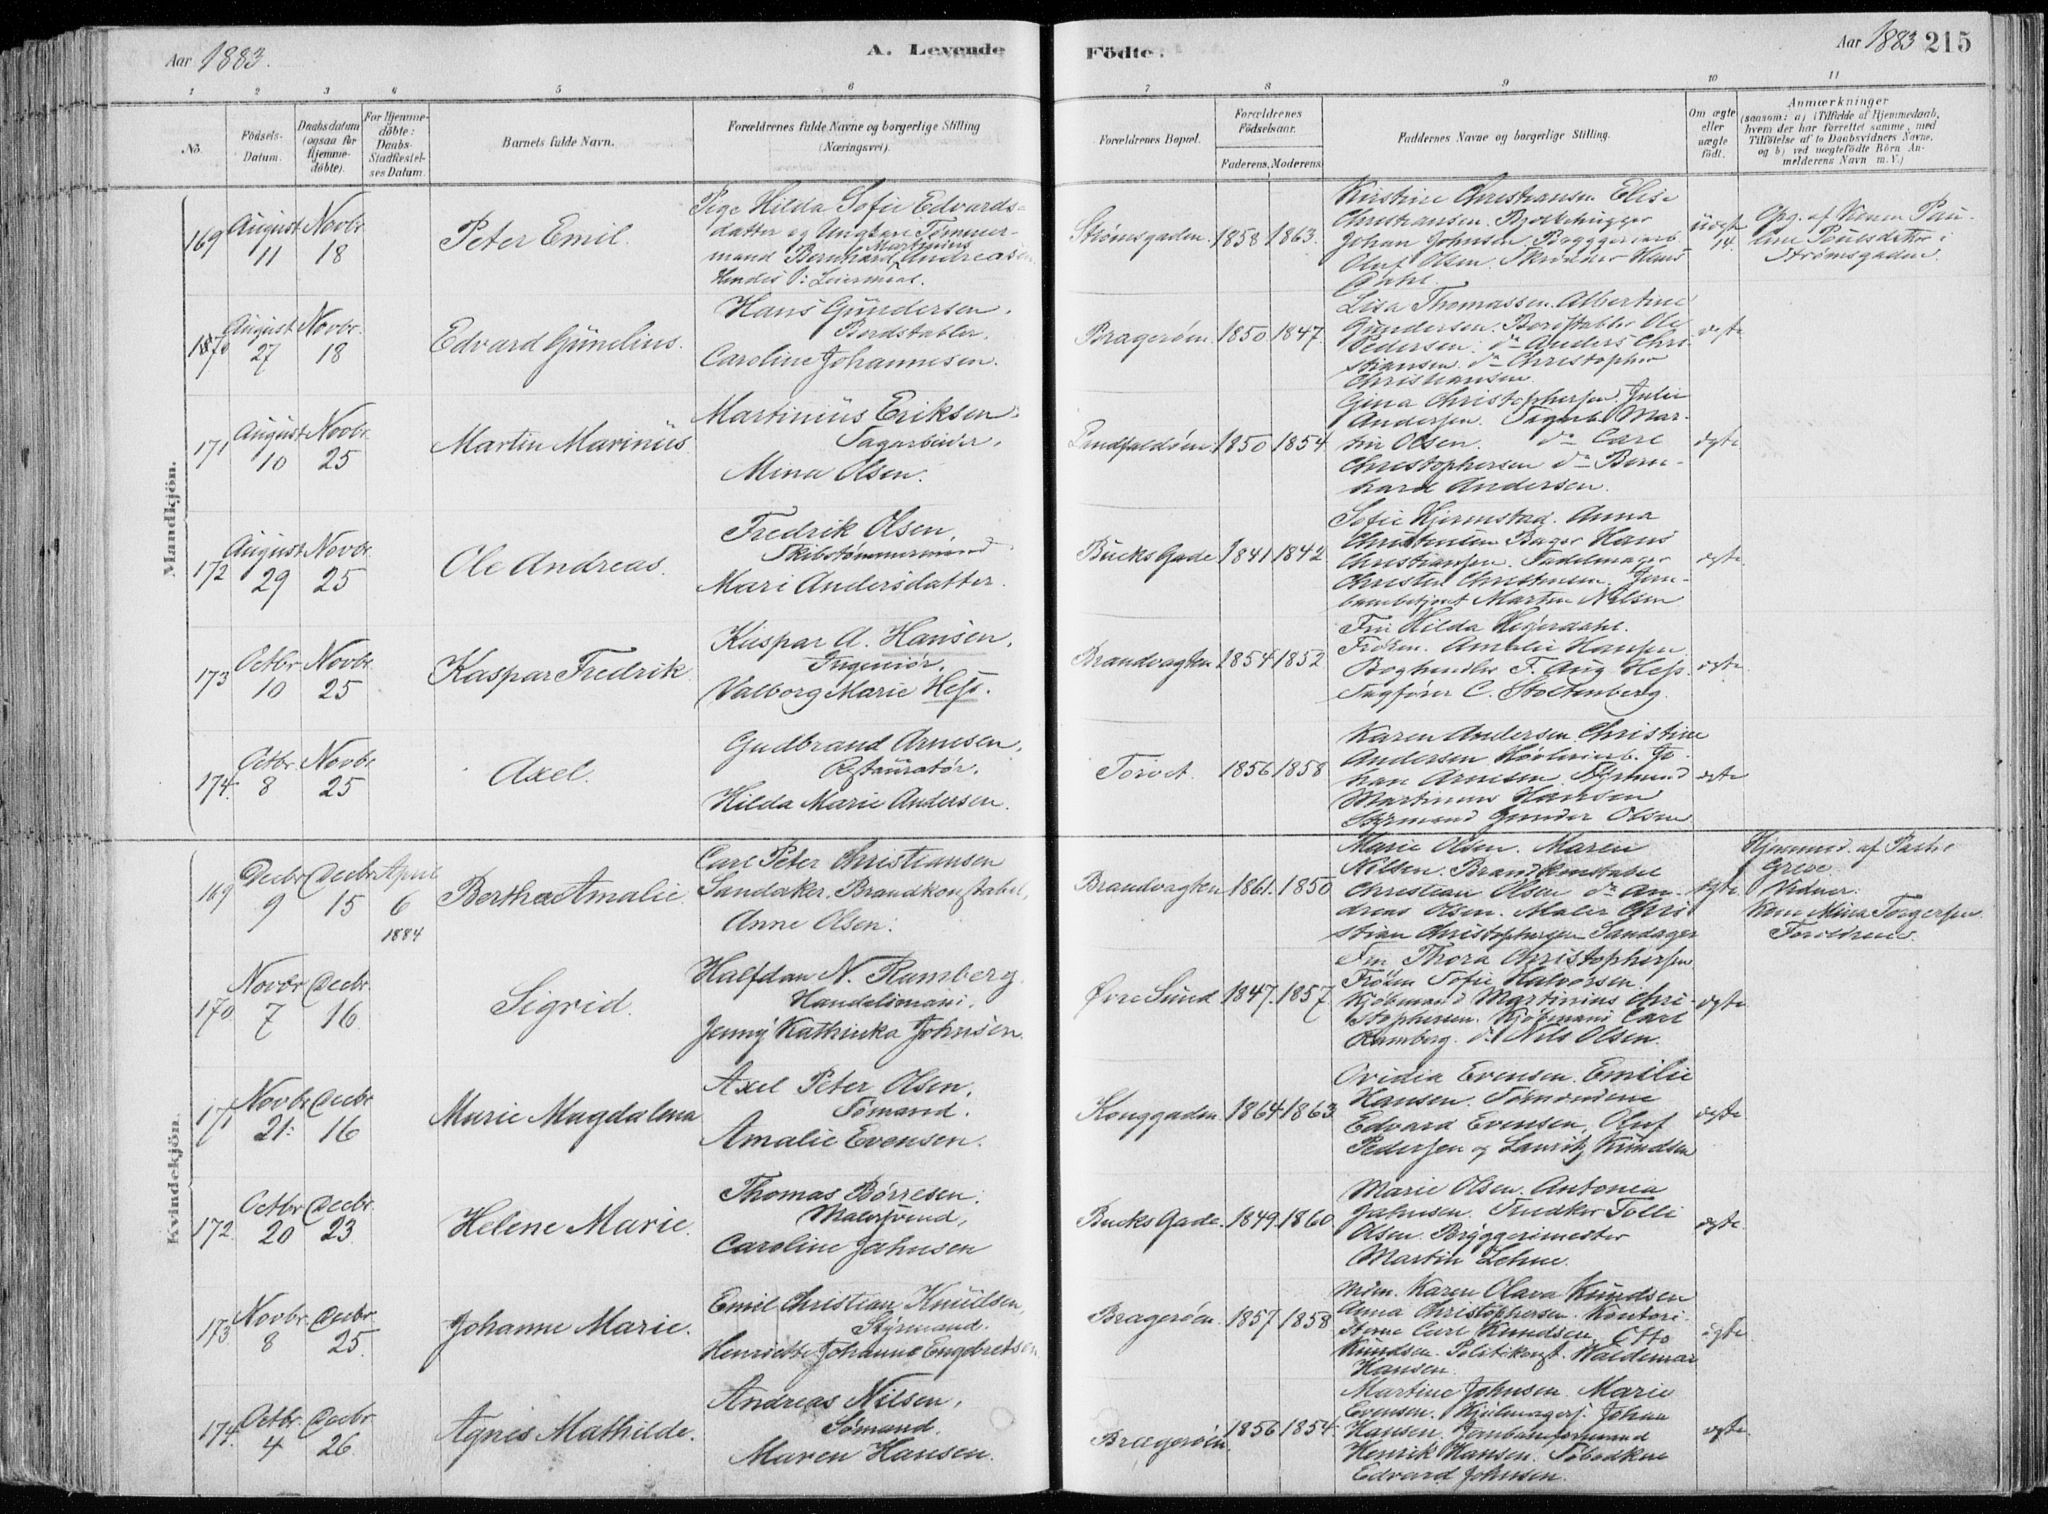 Aar 1883.
A. Levende
Födte.
Aar 1883
215
1 2 3 4 5 6 7 8 9 10 11
No.
Födsels-
Datum.
Daabsdatum
(ogsaa for
Hjemme-
døbte).
For Hjemme-
døbte:
Daabs-
Stadfæstel-
ses Datum.
Barnets fulde Navn.
Forældrenes fulde Navne og borgerlige Stilling
(Næringsvei).
Forældrenes Bopæl.
Forældrenes
Födselsaar.
Faderens. Moderens.
Faddernes Navne og borgerlige Stilling.
Om ægte
eller
uægte
födt.
Anmærkninger
(saasom: a) i Tilfælde af Hjemmedaab,
hvem der har forrettet samme, med
Tilföielse af to Daabsvidners Navne,
og b) ved uægtefödte Börn An-
melderens Navn m. V.)
Mandkjön.
169
August
11
Novbr
18
Peter Emil.
Pige Hilda Sofie Edvards-
datter og Ungkar Tømmer-
Martinius
mand Bernhard Andreasen
Hendes 1: Leiermaal.
Strømsgaden. 1858 1863.
Kirstine Christiansen Elise
Christiansen. Brolehugger
Johan Johnsen Bryggeriarb
Oluf Olsen. Skrædder Hans
uægte
14.
Opg. af Konen Pau-
line Poulsdatter i
Strømsgaden.
170
August
27
Novbr.
18
Edvard Gunelius.
Hans Gundersen,
Bordstabler,
Caroline Johannesen.
Bragerøen. 1850 1847.
Lisa Thomassen. Albertine
Gundersen. Bordstabler Ole
Pedersen. do Anders Chri-
stiansen. do Christopher
Christiansen.
ægte
171
August
10
Novbr.
25
Martin Marinius.
Martinius Eriksen.
Sagarbeider,
Mina Olsen.
Landfaldøen. 1850 1854.
Gina Christophersen. Julie
Andersen. Sagarb. Mar-
tin Olsen. do Carl
Christophersen do Bern-
hard Andersen.
ægte
172
August
29
Novbr.
25
Ole Andreas.
Fredrik Olsen,
Skibstømmermand
Mari Andersdatter.
Bucks Gade 1841 1842
Sofie Hjermstad. Anna
Christensen Bager Hans
Christiansen. Sadelmager
Christen Christensen. Jern-
banebetjent Martin Nilsen
ægte
173
Octbr
10
Novbr.
25
Kaspar Fredrik.
Kaspar A. Hansen.
Ingeniør.
Valborg Marie Hess.
Brandvagten 1854 1852
Fru Hilda Hejerdahl.
Frøken. Amalie Hansen
Boghandler F. Aug Hess.
Sagfører C. Stoltenberg.
ægte
174.
Octbr.
8
Novbr
25
Axel.
Gudbrand Arnesen,
Restauratør.
Hilda Marie Andersen.
Torvet. 1856 1858
Karen Andersen Christine
Andersen Høvleriarb. Jo-
han Arnesen. Styrmand
Martinius Hansen
Styrmand Gunder Olsen
ægte
Kvindekjön.
169
Decbr
9
Decbr
15
April
6
1884
Berthe Amalie.
Carl Peter Christiansen
Sandaker. Brandkonstabel,
Anne Olsen.
Brandvagten 1861. 1850
Marie Olsen. Maren
Nilsen. Brandkonstabel
Christian Olsen do An-
dreas Olsen. Maler Chri
stian Christophersen Sandager
ægte
Hjemmed. af Pastor
Greve.
Vidner:
Kone Mina Torgersen
Forældrene.
170
Novbr
7
Decbr.
16
Sigrid.
Halfdan N. Ramberg.
Handelsmand.
Jenny Kathinka Johnsen.
Øvre Sund 1847. 1857.
Fru Thora Christophersen
Frøken Sofie Halvorsen.
Kjøbmand Martinius Chri-
stophersen. Kjøbmand Carl
Ramberg. do Nils Olsen.
ægte
171
Novbr
21.
Decbr
16
Marie Magdalena
Axel Peter Olsen.
Sømand.
Amalie Evensen.
Konggaden 1864 1863
Ovidia Evensen. Emilie
Hansen. Sømændene
Edvard Evensen, Oluf
Pedersen og Lauritz Knudsen
ægte
172.
Octbr
20
Decbr.
23.
Helene Marie.
Thomas Børresen.
Malersvend,
Caroline Jahnsen
Bucks Gade. 1849. 1860.
Marie Olsen. Antonea
Jahnsen. Snedker Tolle
Olsen. Bryggerimester
Martin Lehne.
ægte
173
Novbr.
8
Decbr.
25.
Johanne Marie.
Emil Christian Knudsen,
Styrmand.
Henriette Johanne Engebretsen
Bragerøen 1857. 1858
Mdm. Karen Olava Knudsen
Anna Christophersen. Kontori-
sterne Carl Knudsen, Otto
Knudsen. Politikonst. Waldemar
Hansen.
ægte
174.
Octbr.
4
Decbr.
26
Agnes Mathilde.
Andreas Nilsen,
Sømand.
Maren Hansen.
Bragerøen. 1856 1854.
Martine Johnsen. Marie
Evensen. Hjulmagers. Johan
Hansen. Jernbaneformand
Henrik Hansen.
Edvard Johnsen.
ægte.